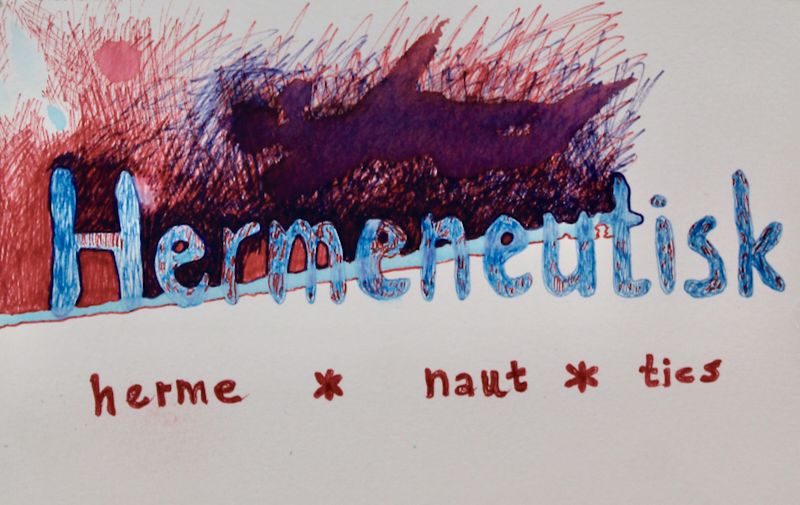 Hermeneutisk
herme * naut * tics